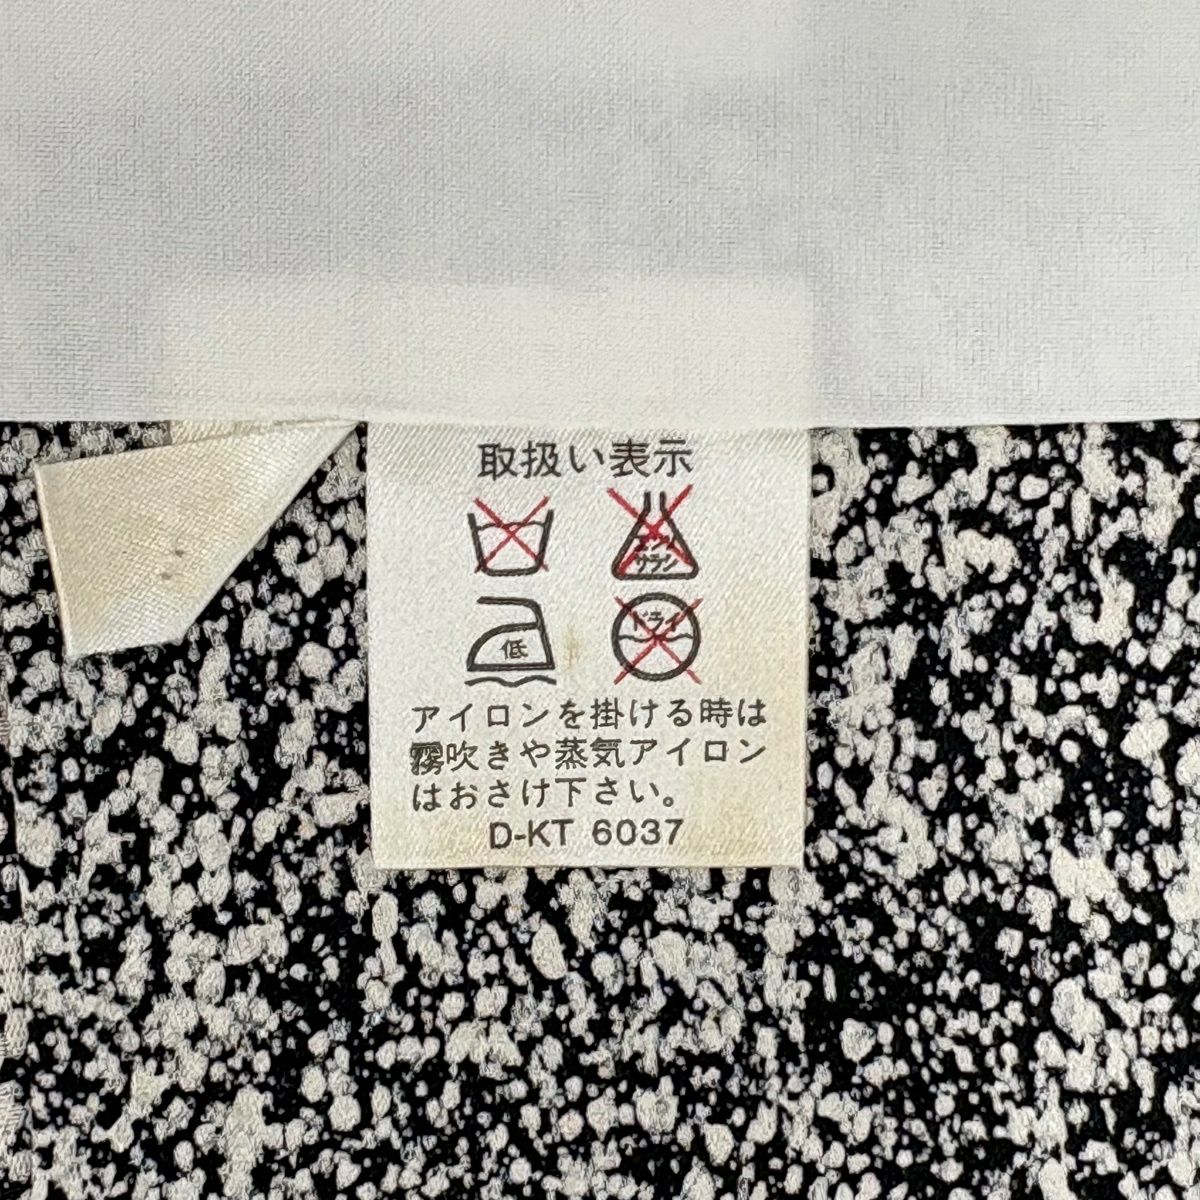 取扱い表示
エンソ
サラシ
低
ドライ
アイロンを掛ける時は
霧吹きや蒸気アイロン
はおさけ下さい。
D-KT 6037